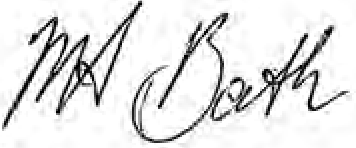 MA Bath